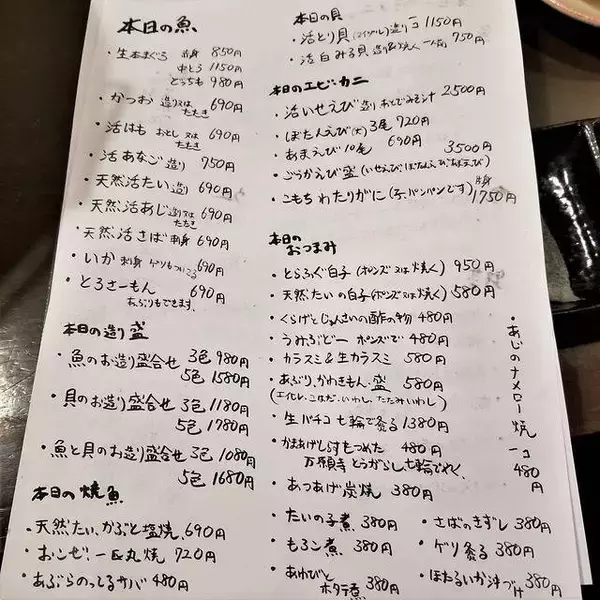 本日の魚
・生本まぐろ 赤身 850円
中とろ 1150円
どっちも 980円
・かつお 造り又はたたき 690円
・活はも おとし又はたたき 690円
・活あなご 造り 750円
・天然活たい 造り 690円
・天然活あじ 造り又はたたき 690円
・天然活さば 刺身 690円
・いか 刺身 ゲソもついてる 690円
・とろさーもん 690円
あぶりもできます。
本日の造り盛
・魚のお造り盛合せ 3色 980円
5色 1580円
・貝のお造り盛合せ 3色 1180円
5色 1780円
・魚と貝のお造り盛合せ 3色 1080円
5色 1680円
本日の焼魚
・天然たい、かぶと塩焼 690円
・おこぜ、一匹丸焼 720円
・あぶらのってるサバ 480円
本日の貝
・活とり貝 造り 一コ 1150円
・活白みる貝 造り 750円
本日のエビ・カニ
・活いせえび 造り あとでみそ汁 2500円
・ぼたんえび(大) 3尾 720円
・あまえび 10尾 690円
・ごうかえび盛 (いせえび、ぼたんえび、あまえび) 3500円
・こもちわたりがに (子、パンパンです) 1750円
本日のおつまみ
・とらふぐ白子 (ポンズ又は焼く) 950円
・天然たいの白子 (ポンズ又は焼く) 580円
・くらげとじゅんさいの酢の物 480円
・うみぶどー ポンズで 480円
・カラスミ&生カラスミ 580円
・あぶり、かわきもん、盛 580円
(エイヒレ、こはだ、いわし、たたみいわし)
・生バチコ七輪で炙る 1380円
・かまあげしらすもつめた 480円
万願寺とうがらし七輪でやく、
・あつあげ炭焼 380円
・たいの子煮 380円
・もろこ煮 380円
・あわびとホタテ煮 380円
・さばのきずし 380円
・ゲソ炙る 380円
・ほたるいか沖づけ 380円
・あじのナメロー焼 一コ 480円